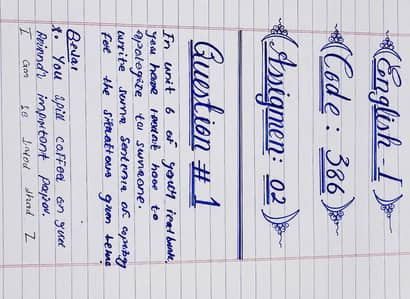 English - I
Code : 386
Assigmen: 02
Question # 1
In unit 6 of your text book,
you have learnt how to
apologize to someone.
write some sentence of apology
for the situations given below
Below
1. You spill coffee on your
friends important paper.
I am so that I